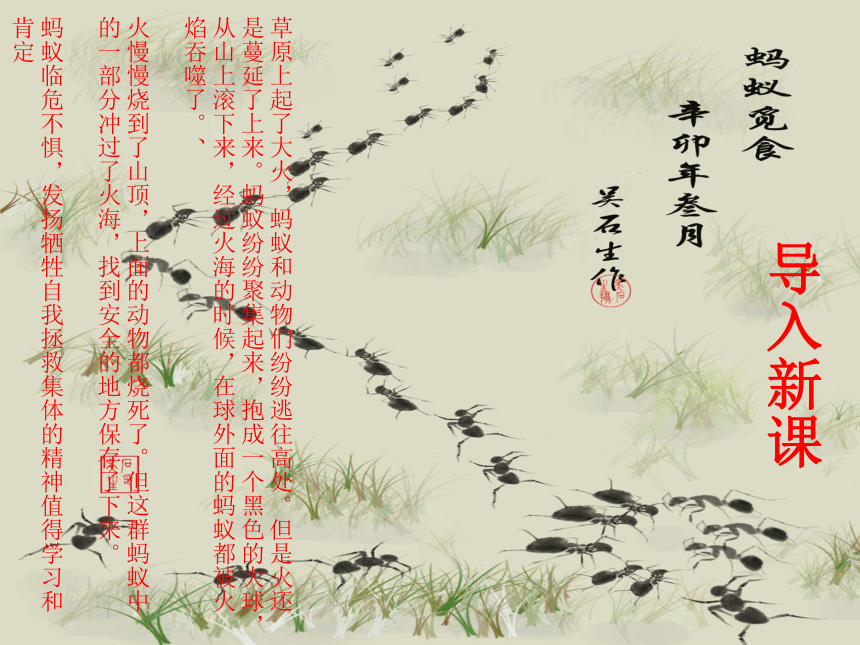 导入新课
蚂蚁觅食
辛卯年叁月
吴石生作
草原上起了大火，蚂蚁和动物们纷纷逃往高处。但是火还
是蔓延了上来。蚂蚁纷纷聚集起来，抱成一个黑色的大球，
从山上滚下来，经过火海的时候，在球外面的蚂蚁都被火
焰吞噬了。、
火慢慢烧到了山顶，上面的动物都烧死了。但这群蚂蚁中
的一部分冲过了火海，找到安全的地方保存了下来。
蚂蚁临危不惧，发扬牺牲自我拯救集体的精神值得学习和
肯定